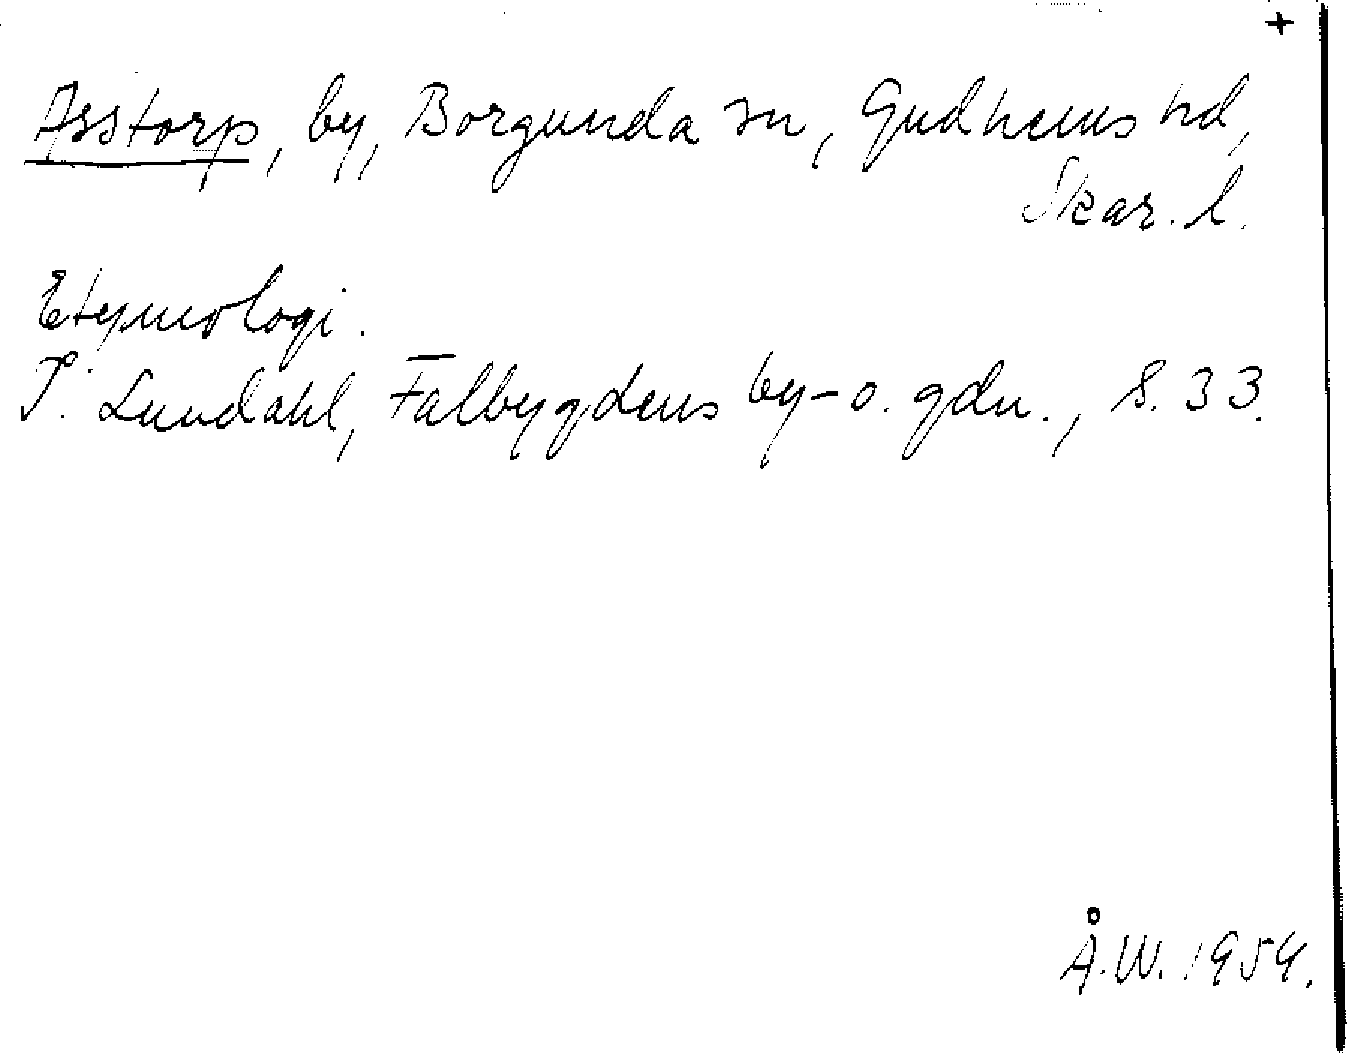 +
Asstorp, by, Borgunda sn, Gudhems hd,
Skar. l.
Etymologi.
I. Lundahl, Falbygdens by- o. gdn., s. 33.
Å.W. 1954.